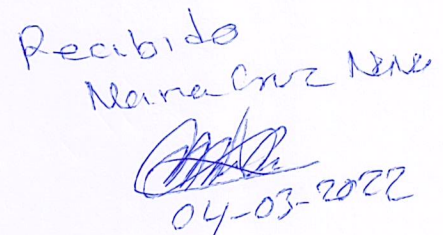 Recibido
Maria Cruz
04-03-2022